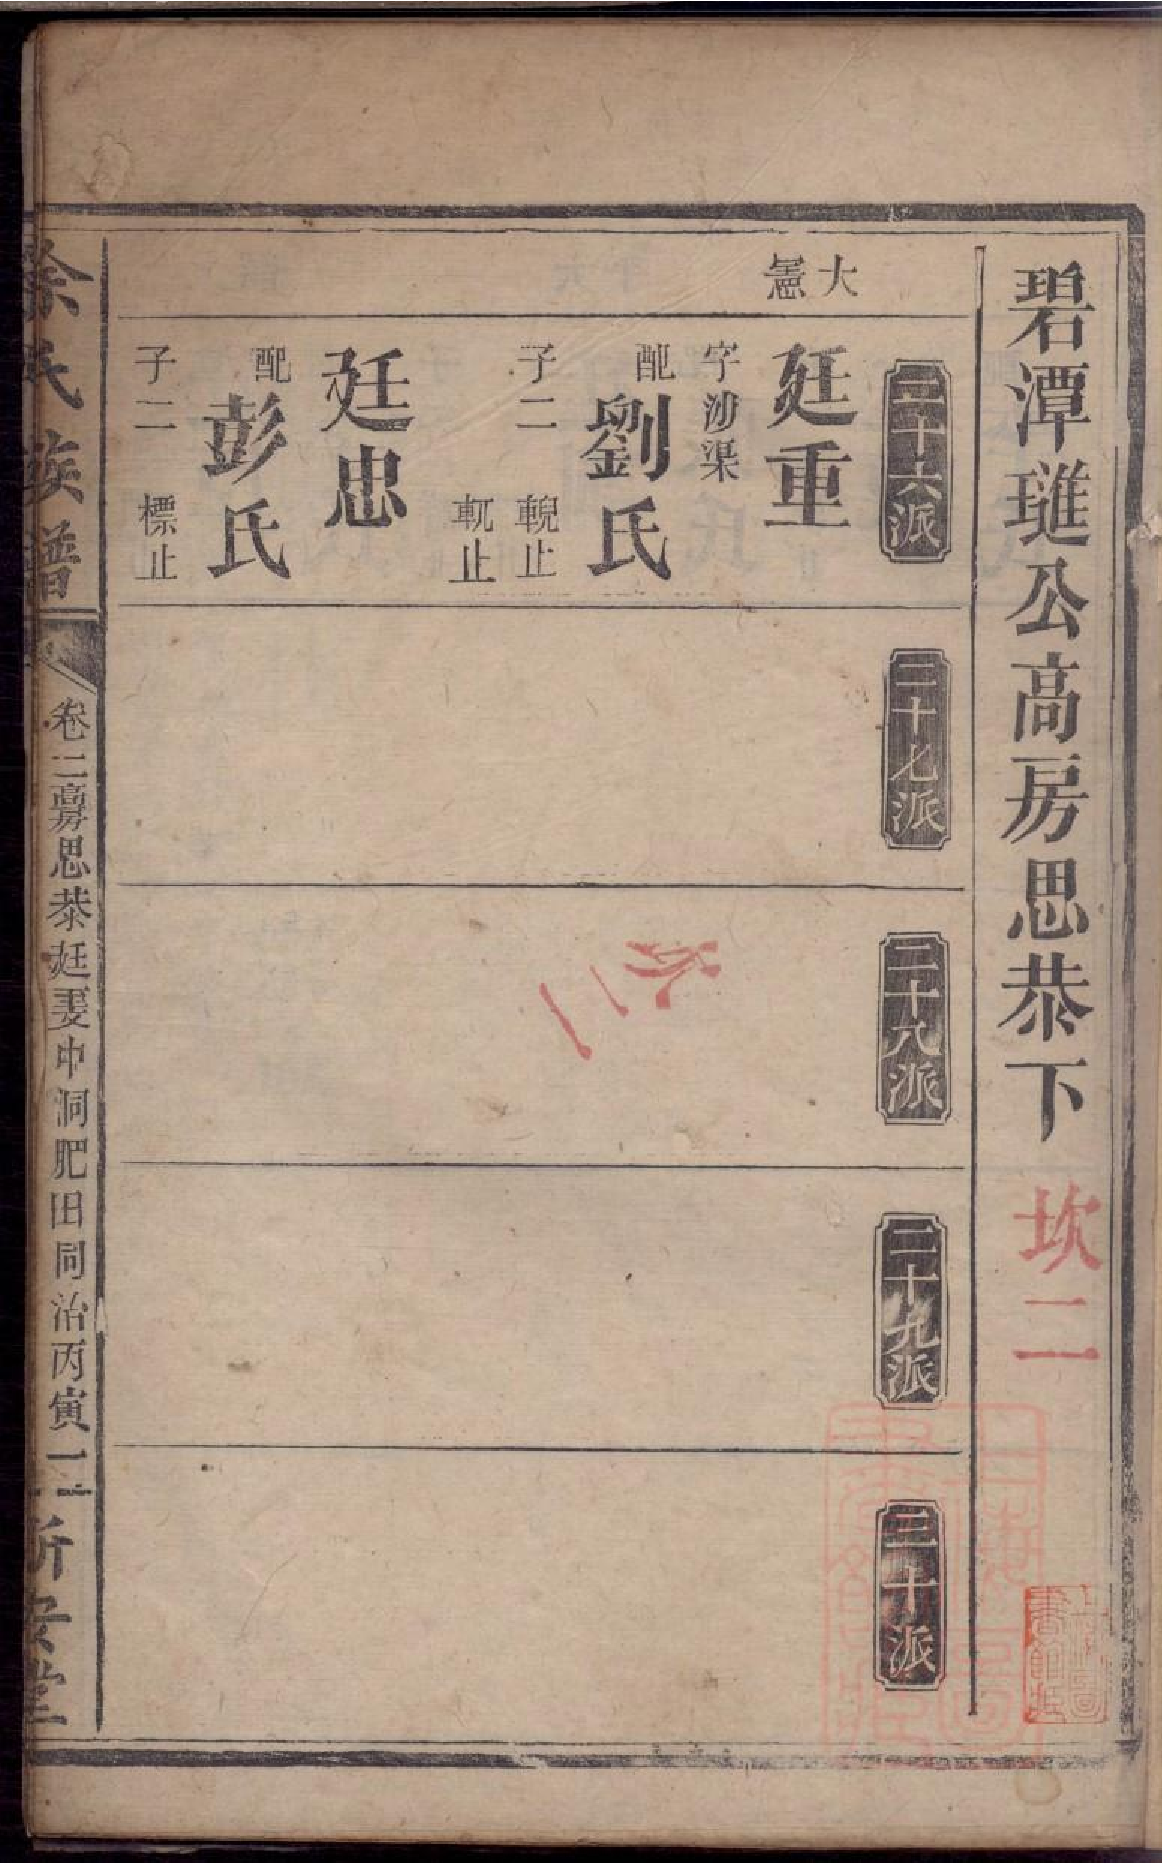 碧潭璡公高房思恭下
坎二
二十六派
二十七派
二十八派
二十九派
三十派
大
廷重
字沕渠
配劉氏
子二 輗止
軏止
廷忠
配彭氏
子二 標止
坎二
徐氏族譜
卷二高房思恭廷要中洞肥田同治丙寅
新安堂
上海圖書館藏